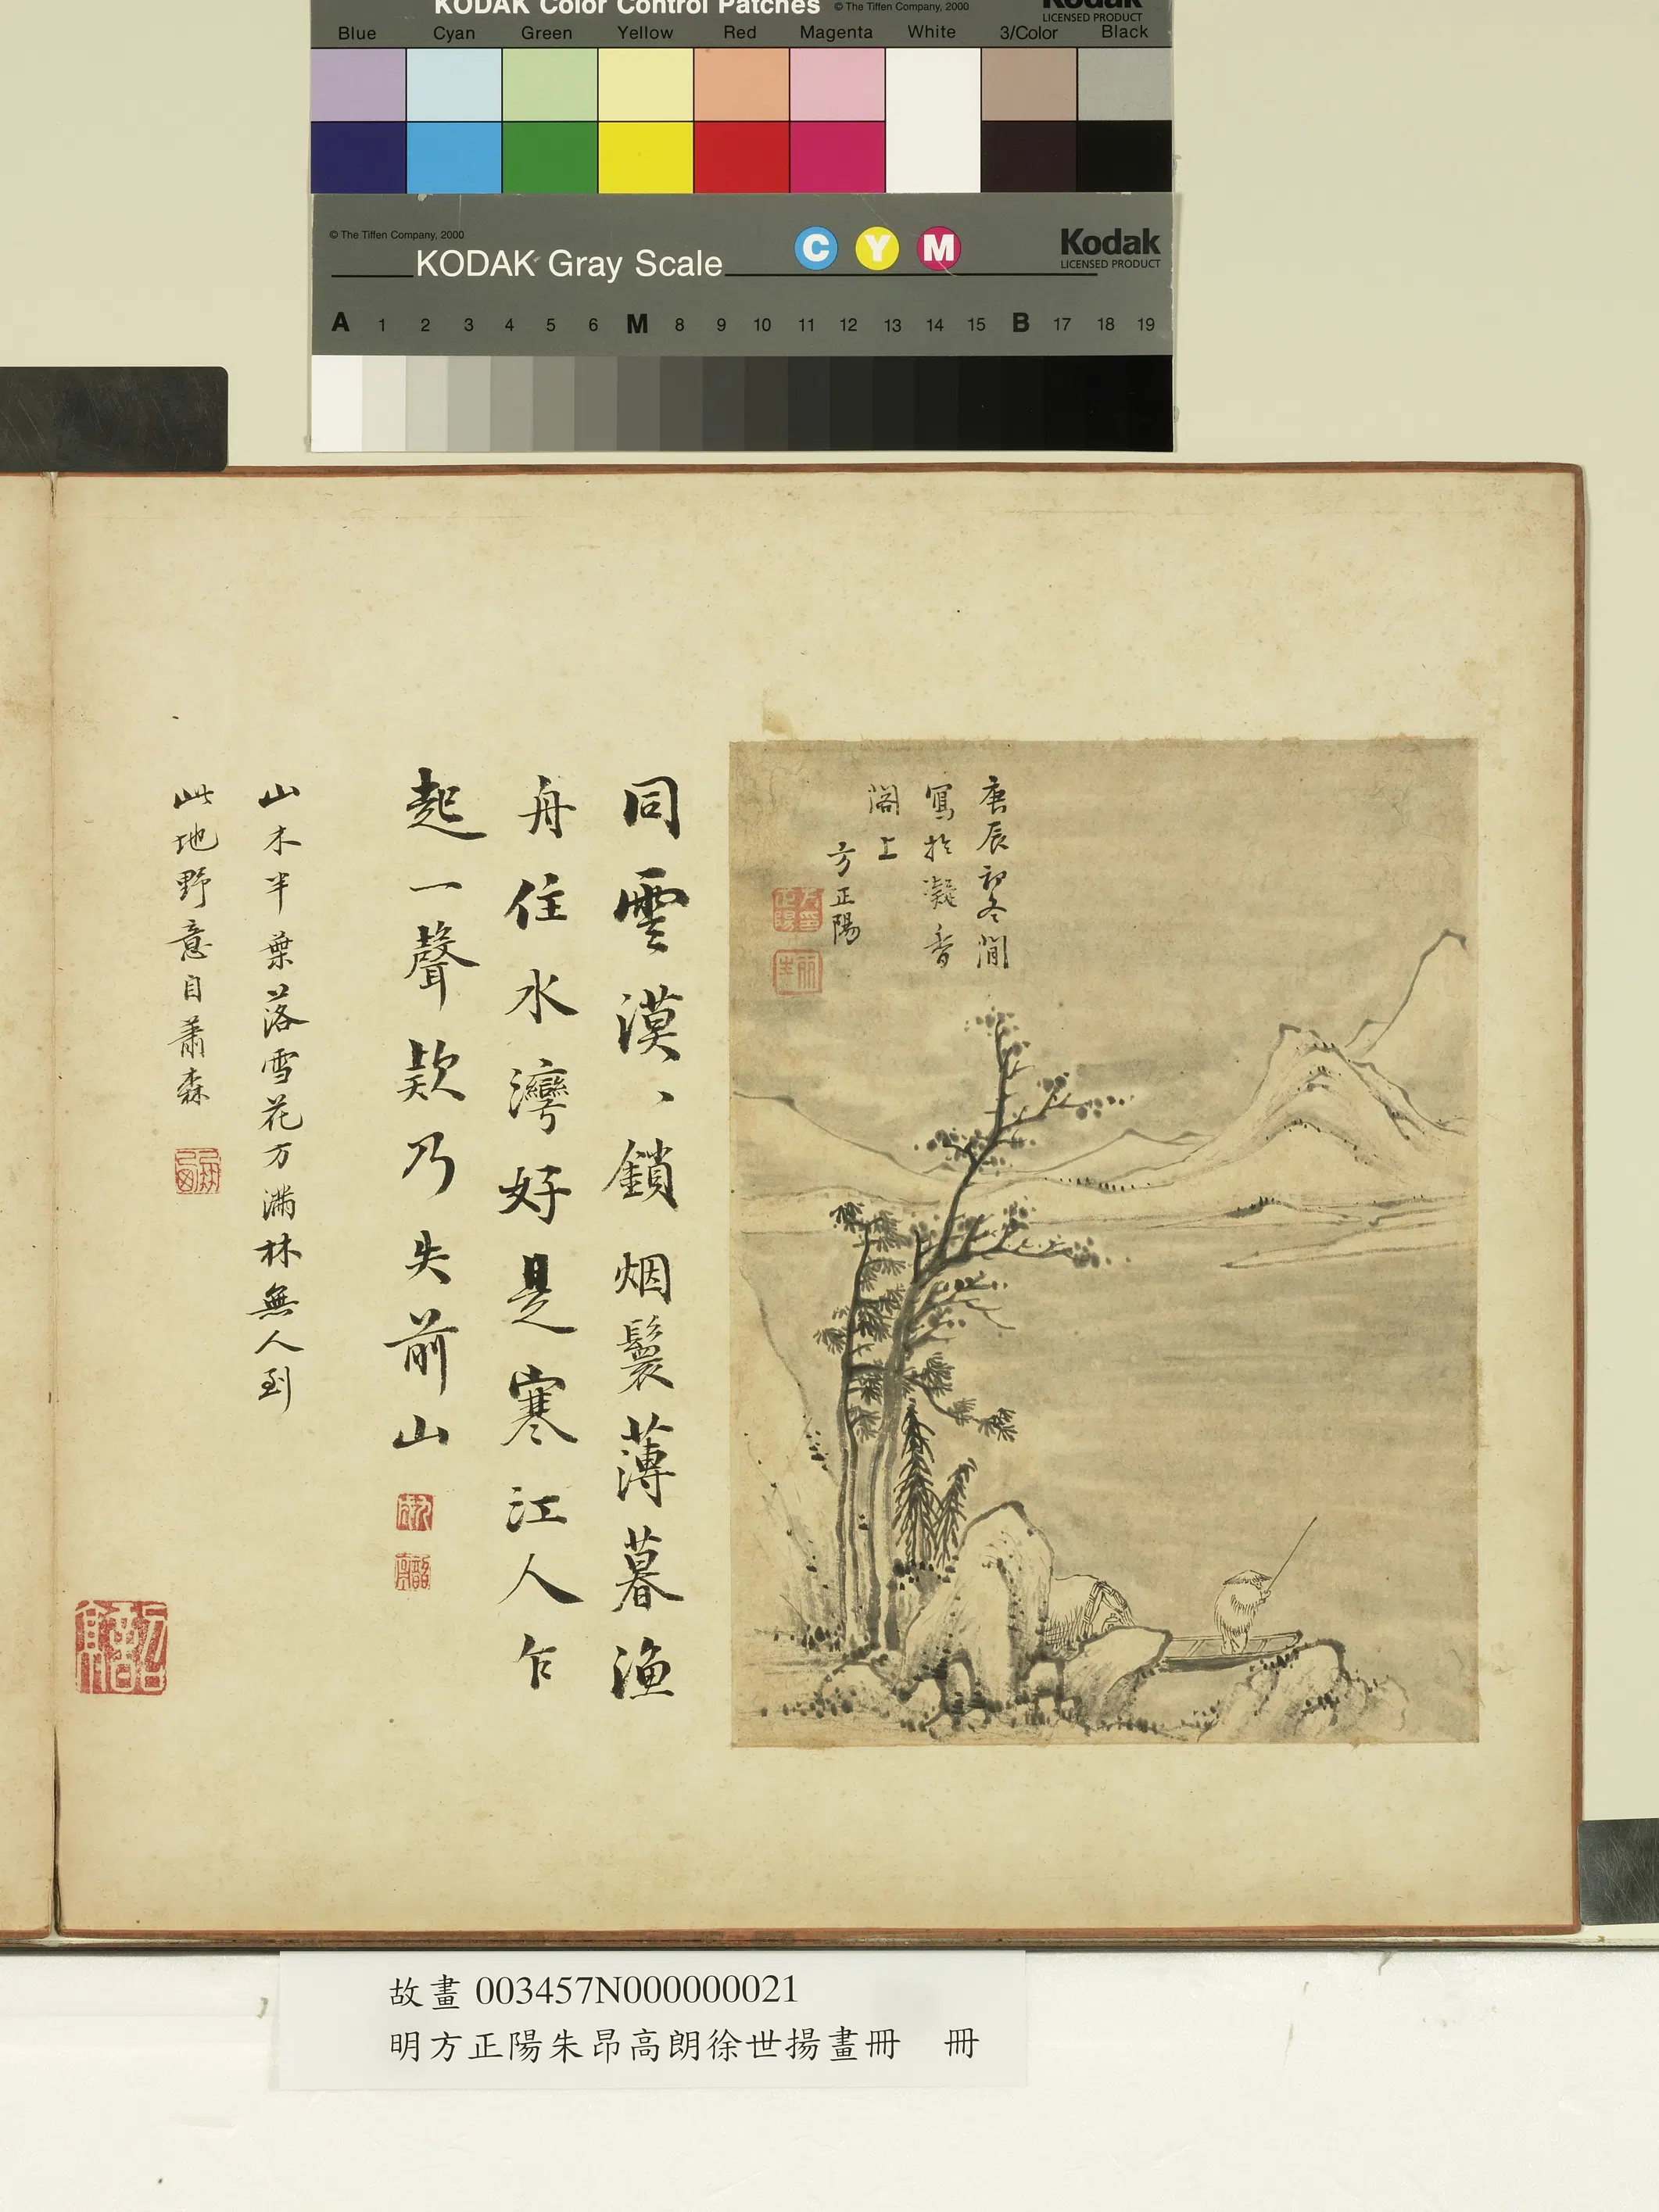 KODAK Color Control Patches © The Tiffen Company, 2000 Kodak
LICENSED PRODUCT
Blue Cyan Green Yellow Red Magenta White 3/Color Black
© The Tiffen Company, 2000
KODAK Gray Scale C Y M Kodak
LICENSED PRODUCT
A 1 2 3 4 5 6 M 8 9 10 11 12 13 14 15 B 17 18 19
庚辰初冬閒
寫於凝香
閣上
方正陽
同雲漠、鎖烟鬟薄暮漁
舟住水灣好是寒江人乍
起一聲欵乃失前山
山木半葉落雪花方滿林無人到
此地野意自蕭森
故畫 003457N000000021
明方正陽朱昂高朗徐世揚畫冊 冊